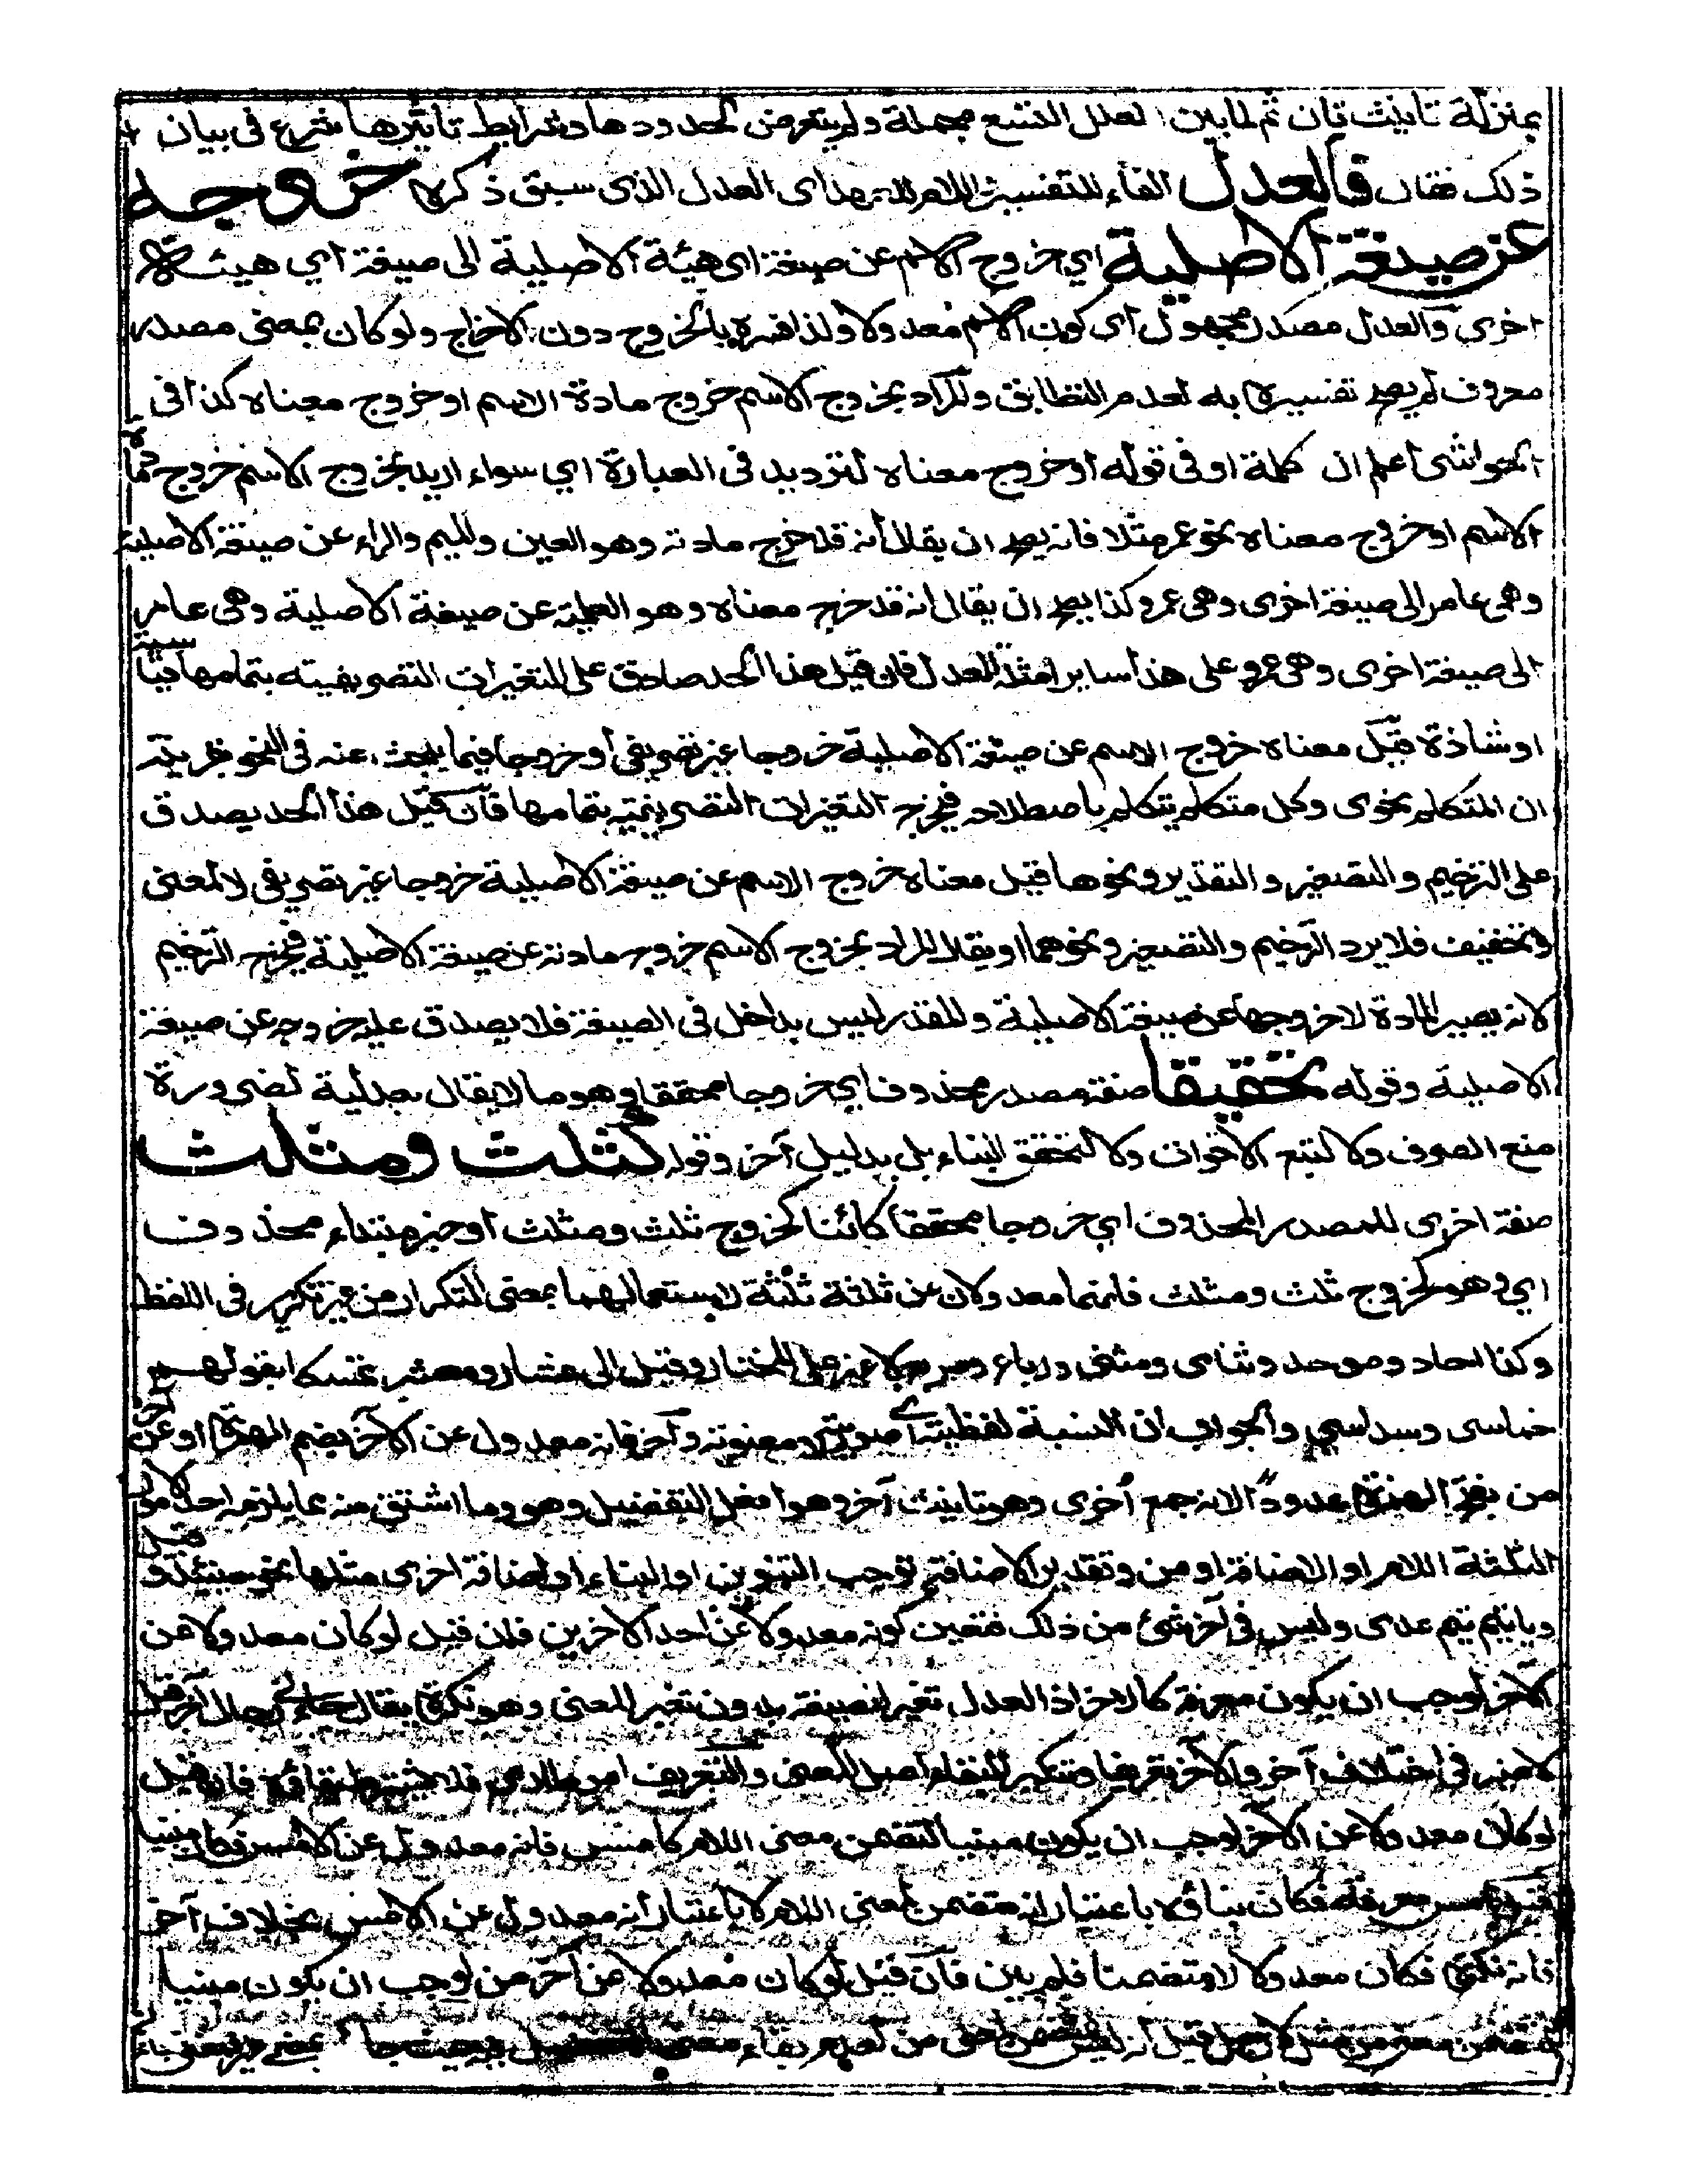 بمنزلة تانيث ثان ثم لما بين العلل التسع مجملة ولم يتعرض لحدودها وشرايط تاثيرها شرع فى بيان
ذلك فقال فالعدل الفاء للتفسير اللام للعهد اى العدل الذى سبق ذكره خروجه
عن صيغته الاصلية اي خروج الاسم عن صيغته اى هيئة الاصلية الى صيغة اي هيئة
اخرى والعدل مصدر مجهول اى كون الاسم معدولا ولذا فسره بالخروج دون الاخراج ولو كان بمعنى مصدر
معروف لم يصح تفسيره به لعدم التطابق والمراد بخروج الاسم خروج مادة الاسم او خروج معناه كذا فى
الحواشى اعلم ان كلمة او فى قوله او خروج معناه لترديد فى العبارة اي سواء اريد بخروج الاسم خروج مادة
الاسم او خروج معناه نحو عمر مثلا فانه يصح ان يقال انه قد خرج مادته وهو العين والميم والراء عن صيغته الاصلية
وهى عامر الى صيغة اخرى وهى عمر وكذا يصح ان يقال انه قد خرج معناه وهو العلمية عن صيغة الاصلية وهى عامر
الى صيغة اخرى وهى عمر وعلى هذا ساير امثلة العدل فان قيل هذا الحد صادق على التغيرات التصريفية بتمامها قياسية
او شاذة قيل معناه خروج الاسم عن صيغته الاصلية خروجا غير تصريفى او خروجا فيما يبحث عنه فى النحو بقرينة
ان المتكلم نحوى وكل متكلم يتكلم باصطلاحه فيخرج التغيرات التصريفية بتمامها فان قيل هذا الحد يصدق
على الترخيم والتصغير والتقدير ونحوها قيل معناه خروج الاسم عن صيغته الاصلية خروجا غير تصريفى لا لمعنى
وتخفيف فلا يرد الترخيم والتصغير ونحوهما او يقال المراد بخروج الاسم خروج مادته عن صيغته الاصلية فيخرج الترخيم
لانه يصير المادة لا خروجها عن صيغته الاصلية والمقدر ليس بداخل فى الصيغة فلا يصدق عليه خروجه عن صيغته
الاصلية وقوله تحقيقا صفة مصدر محذوف اي خروجا محققا وهو ما لا يقال بعدليته لضرورة
منع الصرف ولا لتبع الاخوات ولا لتحقق البناء بل بدليل آخر وقوله كثلث ومثلث
صفة اخرى للمصدر المحذوف اي خروجا محققا كائنا كخروج ثلث ومثلث او خبر مبتداء محذوف
اي وهو كخروج ثلث ومثلث فانهما معدولان عن ثلثة ثلثة لاستعمالهما بمعنى التكرار من غير تكرير فى اللفظ
وكذا احاد وموحد وثناى ومثنى ورباع ومربع لا غير على المختار وقيل الى عشار ومعشر تمسكا بقولهم
خماسى وسداسي والجواب ان النسبة لفظية اي صورية لا معنوية وآخر فانه معدول عن الآخر بضم الهمزة او عن آخر
من بفتح الهمزة ممدودا لانه جمع اخرى وهو تانيث آخر وهو افعل التفضيل وهو وما اشتق منه مما يلزمه احد الامور
الثلثة اللام او الاضافة او من وتقدير الاضافة يوجب التنوين او البناء او اضافة اخرى مثلها نحو حينئذ وقبل
ويا تيم تيم عدى وليس فى آخر شئ من ذلك فتعين كونه معدولا عن احد الآخرين فان قيل لو كان معدولا عن
الآخر لوجب ان يكون معرفة كالآخر اذ العدل تغير الصيغة بدون تغير المعنى وهو نكرة يقال جاءني رجال آخر قيل
لا ضير فى اختلاف آخر والآخر تعريفا وتنكيرا لبقاء اصل المعنى والتعريف امر فلا يشترط بقاؤه فان قيل
لو كان معدولا عن الآخر لوجب ان يكون مبنيا لتضمن معنى اللام كامس فانه معدول عن الامس فكان مبنيا
قيل امس معرفة فكان بناؤه باعتبار انه متضمن لمعنى اللام لا باعتبار انه معدول عن الامس بخلاف آخر
فانه نكرة فكان معدولا لا متضمنا فلم يبن فان قيل لو كان معدولا من آخر من لوجب ان يكون مبنيا